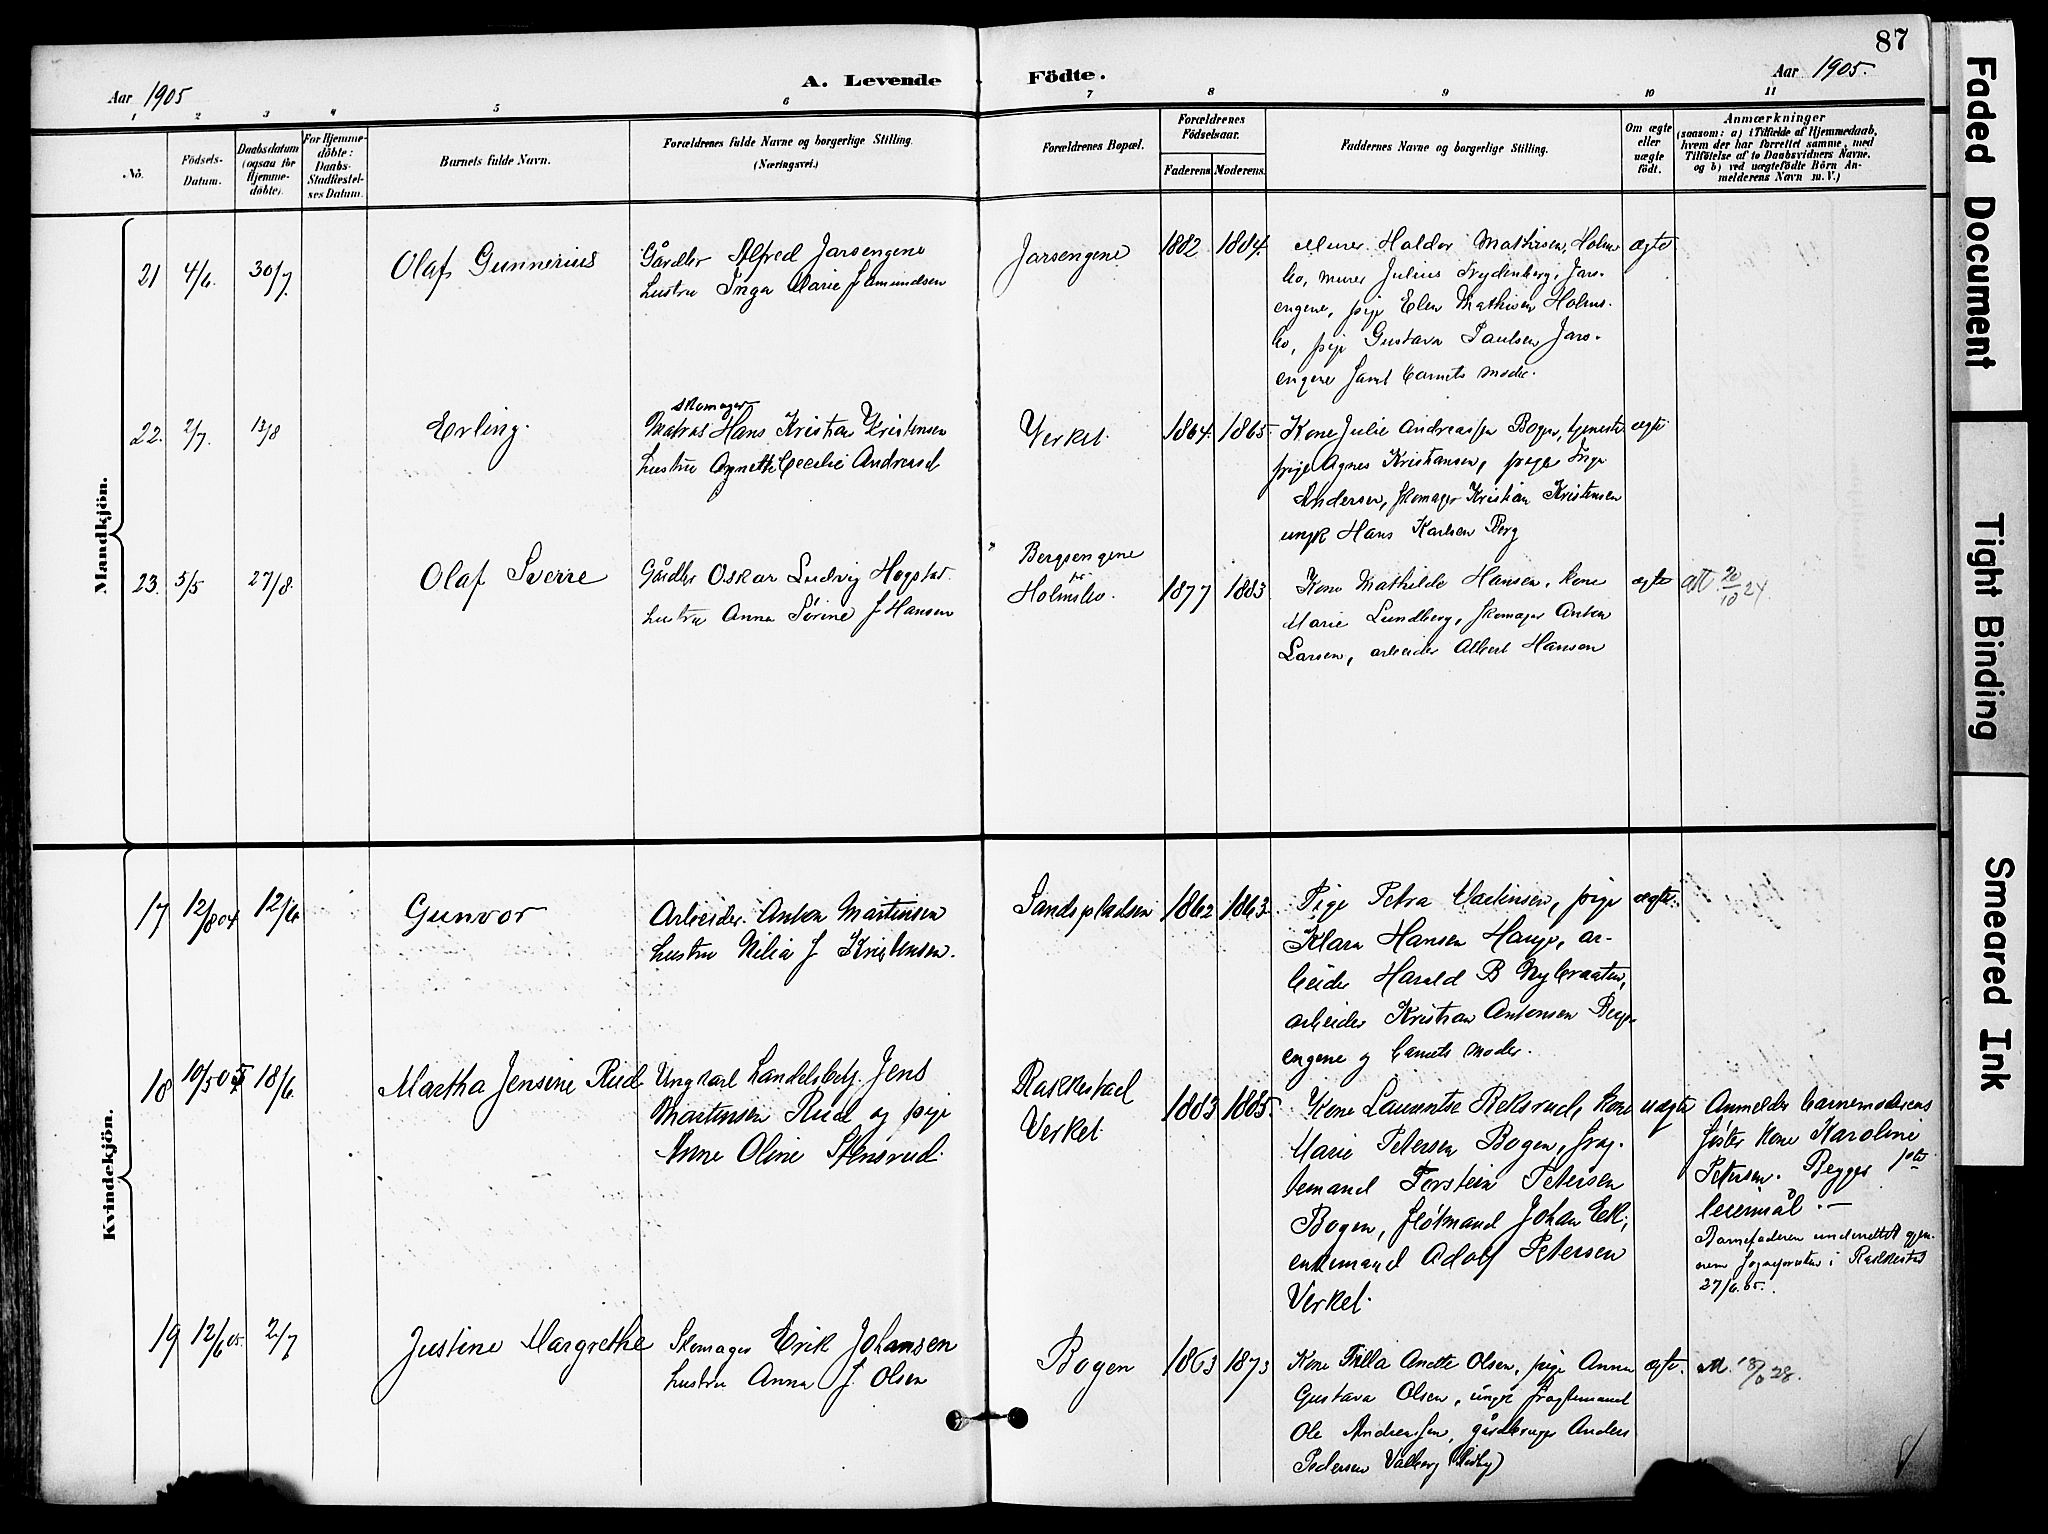 87
Aar 1905
A. Levende Födte.
Aar 1905.
1 2 3 4 5 6 7 8 9 10 11
No.
Födsels-
Datum.
Daabsdatum
(ogsaa for
Hjemme-
döbte).
For Hjemme-
döbte:
Daabs-
Stadfestel-
ses Datum.
Barnets fulde Navn.
Forældrenes fulde Navne og borgerlige Stilling.
(Næringsvei.)
Forældrenes Bopæl.
Forældrenes
Födselsaar.
Faderens Moderens.
Faddernes Navne og borgerlige Stilling.
Om ægte
eller
uægte
födt.
Anmærkninger
(saasom: a) i Tilfælde af Hjemmedaab,
hvem der har forrettet samme, med
Tilföielse af to Daabsvidners Navne.
og b) ved uægtefödte Börn An-
melderens Navn m. V.)
Mandkjön.
21 4/6. 30/7.
Olaf Gunnerius
Gårdbr Alfred Jarsengene
hustru Inga Marie f Amundsen
Jarsengene
1882 1884.
Murer Haldor Mathisen, Holms-
bo, murer Julius Frydenberg, Jars-
engene, pige Elen Mathisen Holms-
bo, pige Gustava Paulsen Jars-
engene samt barnets moder.
ægte
22. 2/7. 13/8
Erling.
skomager
Matros Hans Kristian Kristensen
hustru Agnette Cecilie Andreasd
Verket.
1864. 1865.
Kone Julie Andreassen Bogen, tjeneste
pige Agnes Kristiansen, pige Inga
Andersen, skomager Kristian Kristensen
ungk Hans Karlsen Berg
ægte
23. 5/5 27/8.
Olaf Sverre
Gårdbr Oskar Ludvig Hogstad
hustru Anna Sørine f Hansen
Bergsengene
Holmsbo.
1877 1883
Kone Mathilde Hansen, kone
Marie Lundberg, skomager Anton
Larsen, arbeider Albert Hansen
ægte
att. 20/10 24.
Kvindekjön.
17 12/8 04 12/6.
Gunvor
Arbeider Anton Martinsen
hustru Nilia f Kristensen.
Sandspladsen
1862 1863.
Pige Petra Martinsen, pige
Klara Hansen Hauge, ar-
beider Harald B Nybraaten,
arbeider Kristian Antonsen Bergs-
engene og barnets moder.
ægte.
18 10/5 05 18/6.
Martha Jensine Rud
Ungkarl Landsbetj. Jens
Martinsen Rud og pige
Anne Oline Stensrud.
Rakkestad
Verket
1883 1885.
Kone Laurentse Reksrud, kone
Marie Petersen Bogen, frag-
temand Torstein Petersen
Bogen, fløtmand Johan Ek,
enkemand Adolf Petersen
Verket.
uægte
Anmelder barnemoderens
søster kone Karoline
Petersen. Begges 1ste
leiermål.—
Barnefaderen underrettet gjen-
nem sognepresten i Rakkestad
27/6.05.
19 12/6 05. 2/7
Justine Margrethe
Skomager Erik Johansen
hustru Anna f. Olsen
Bogen
1863 1873
Kone Tilla Anette Olsen, pige Anna
Gustava Olsen, ungk fragtemand
Ole Andreassen, gårdbruger Anders
Pedersen Valberg
ægte.
Faded Document
Tight Binding
Smeared Ink